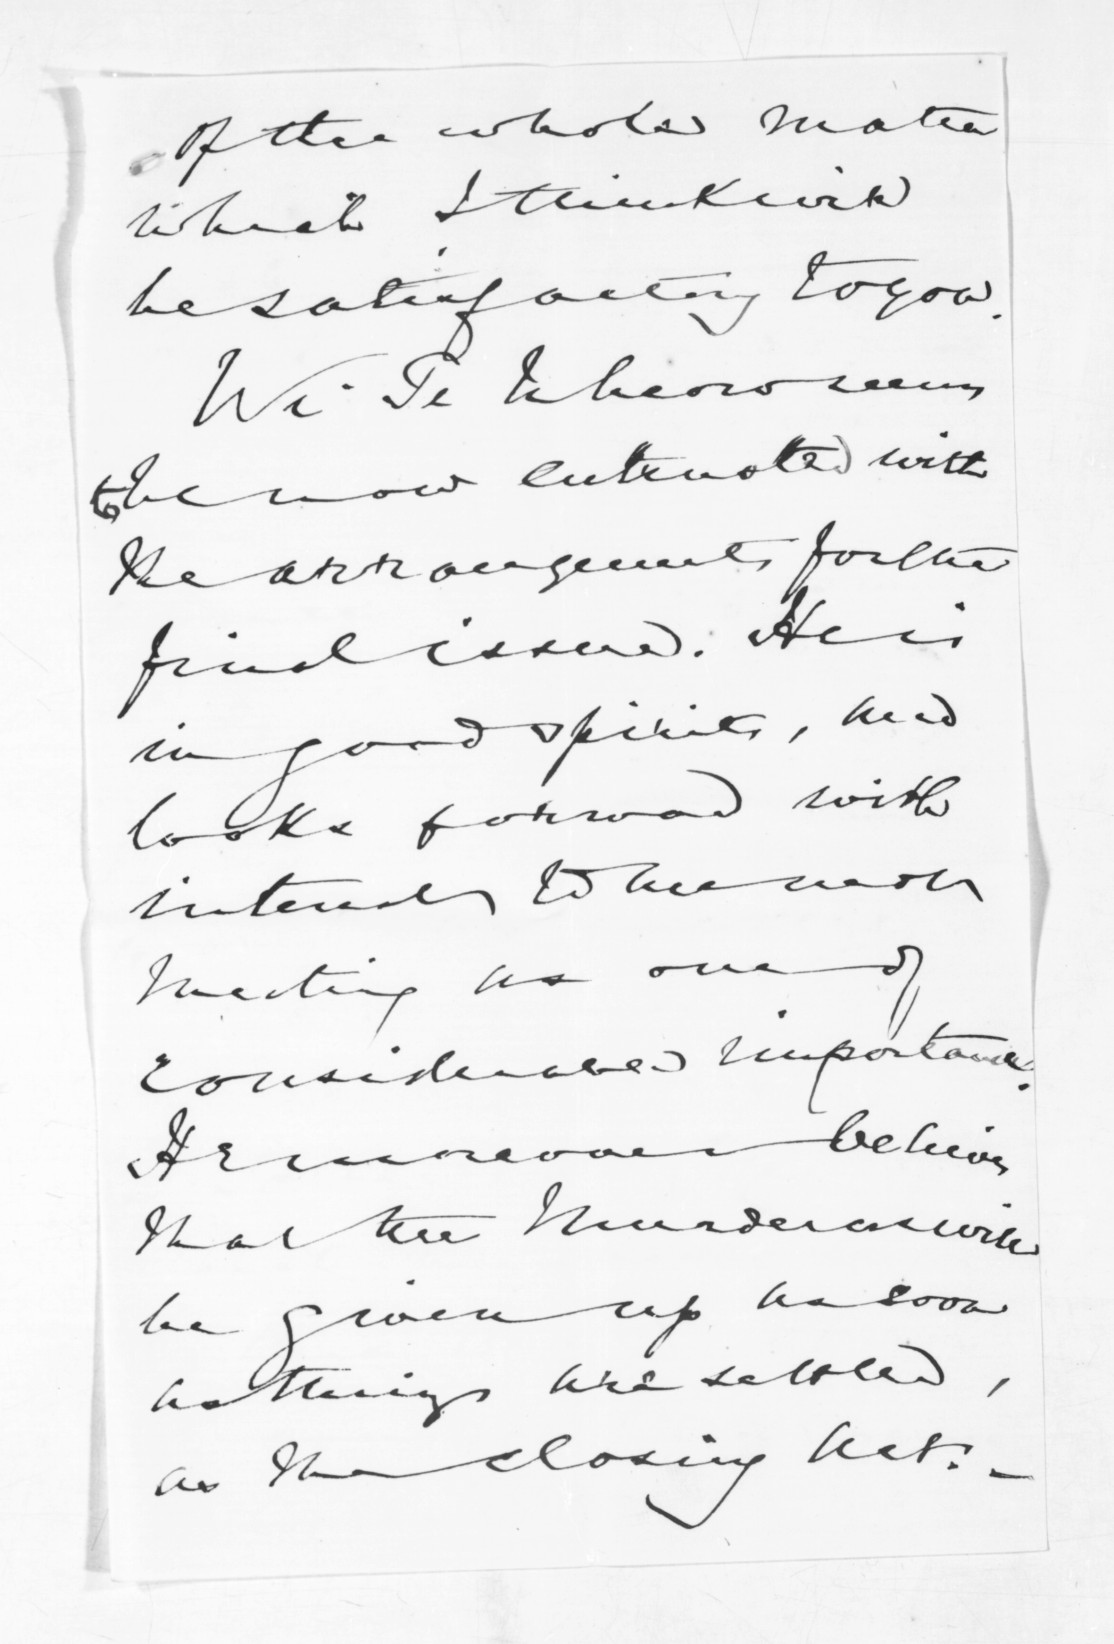 of the whole matter
which I think will
be satisfactory to you.
Wi Te Wheoro seems
to be now entrusted with
the arrangements for the
final issue. He is
in good spirits, and
looks forward with
interest to the next
meeting as one of
considerable importance.
He moreover believes
that the Murderers will
be given up as soon
as things are settled,
as the closing act. –